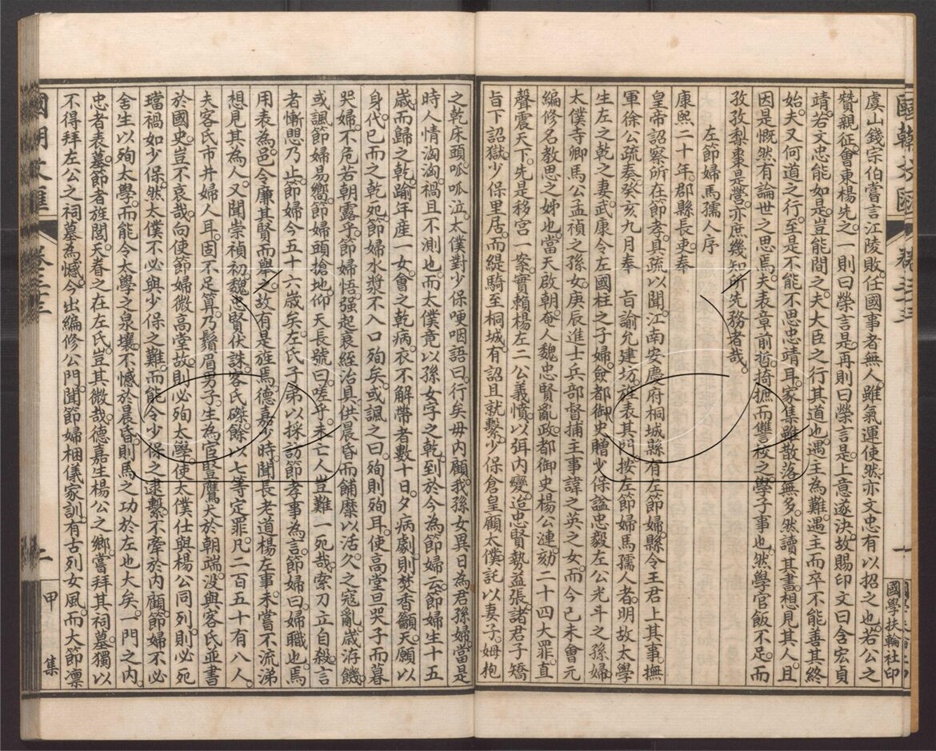 虞山錢宗伯嘗言江陵敗任國事者無人雖氣運使然亦文忠有以招之也若公之
贊親征會東楊先之一則曰榮言是再則曰榮言是上意遂決故賜印文曰含宏貞
靖若文忠能如是豈能間之夫大臣之行其道也遇主為難遇主而卒不能善其終
始夫又何道之行至是不能不思忠靖耳家集雖散落無多然讀其書想見其人且
因是慨然有論世之思焉夫表章前哲掎摭而讐校之學子事也然學官飯不足而
孜孜梨棗是營亦庶幾知所先務者哉
左節婦馬孺人序
康熙二十年郡縣長吏奉
皇帝詔察所在節孝具疏以聞江南安慶府桐城縣有左節婦縣令王君上其事撫
軍徐公疏奏癸亥九月奉 旨諭允建坊旌表其門按左節婦馬孺人者明故太學
生左之乾之妻武康令左國柱之子婦僉都御史贈少保謚忠毅左公光斗之孫婦
太僕寺卿馬公孟禎之孫女庚辰進士兵部督捕主事諱之英之女而今己未會元
編修名教思之姊也當天啟朝奄人魏忠賢亂政都御史楊公連劾二十四大罪直
聲震天下先是移宮一案實賴楊左二公義憤以弭內變追忠賢勢益張諸君子矯
旨下詔獄少保里居而緹騎至桐城有詔且就繫少保倉皇顧太僕託以妻子姆抱
之乾床頭呱呱泣太僕對少保哽咽語曰行矣毋內顧我孫女異日為君孫婦當是
時人情洶洶禍且不測也而太僕竟以孫女字之乾到於今為節婦云節婦生十五
歲而歸之乾踰年產一女會之乾病衣不解帶者數十日夕病劇則焚香籲天願以
身代已而之乾死節婦水漿不入口殉矣或諷之曰殉則殉耳使高堂旦哭子而暮
哭婦不危若朝露乎節婦悟強起衰絰治具供晨昏而餔糜以活久之寇亂歲洊饑
或諷節婦易嚮節婦頭搶地仰天長號曰嗟乎未亡人豈難一死哉案刀立自殺言
者慚恧乃止節婦今五十六歲矣左氏子弟以採訪節孝事為言節婦曰婦職也焉
用表為邑令廉其賢而舉之故有是旌焉德嘉少時聞長老道楊左事未嘗不流涕
想見其為人又聞崇禎初魏忠賢伏誅客氏磔餘以七等定罪凡二百五十有八人
夫客氏市井婦人耳固不足算乃鬚眉男子生為官豎鷹犬於朝端沒與客氏並書
於國史豈不哀哉向使節婦微高堂故則必殉太學使太僕仕與楊公同列則必死
璫禍如少保然太僕不必與少保之難而能令少保之逮繫不牽於內顧節婦不必
舍生以殉太學而能令太學之泉壤不憾於晨昏則馬之功於左也大矣一門之內
忠者表墓節者旌閭天眷之在左氏豈其微哉德嘉生楊公之鄉嘗拜其祠墓獨以
不得拜左公之祠墓為憾今出編修公門聞節婦梱儀家訓有古列女風而大節凜
甲
集
國學扶輪社印